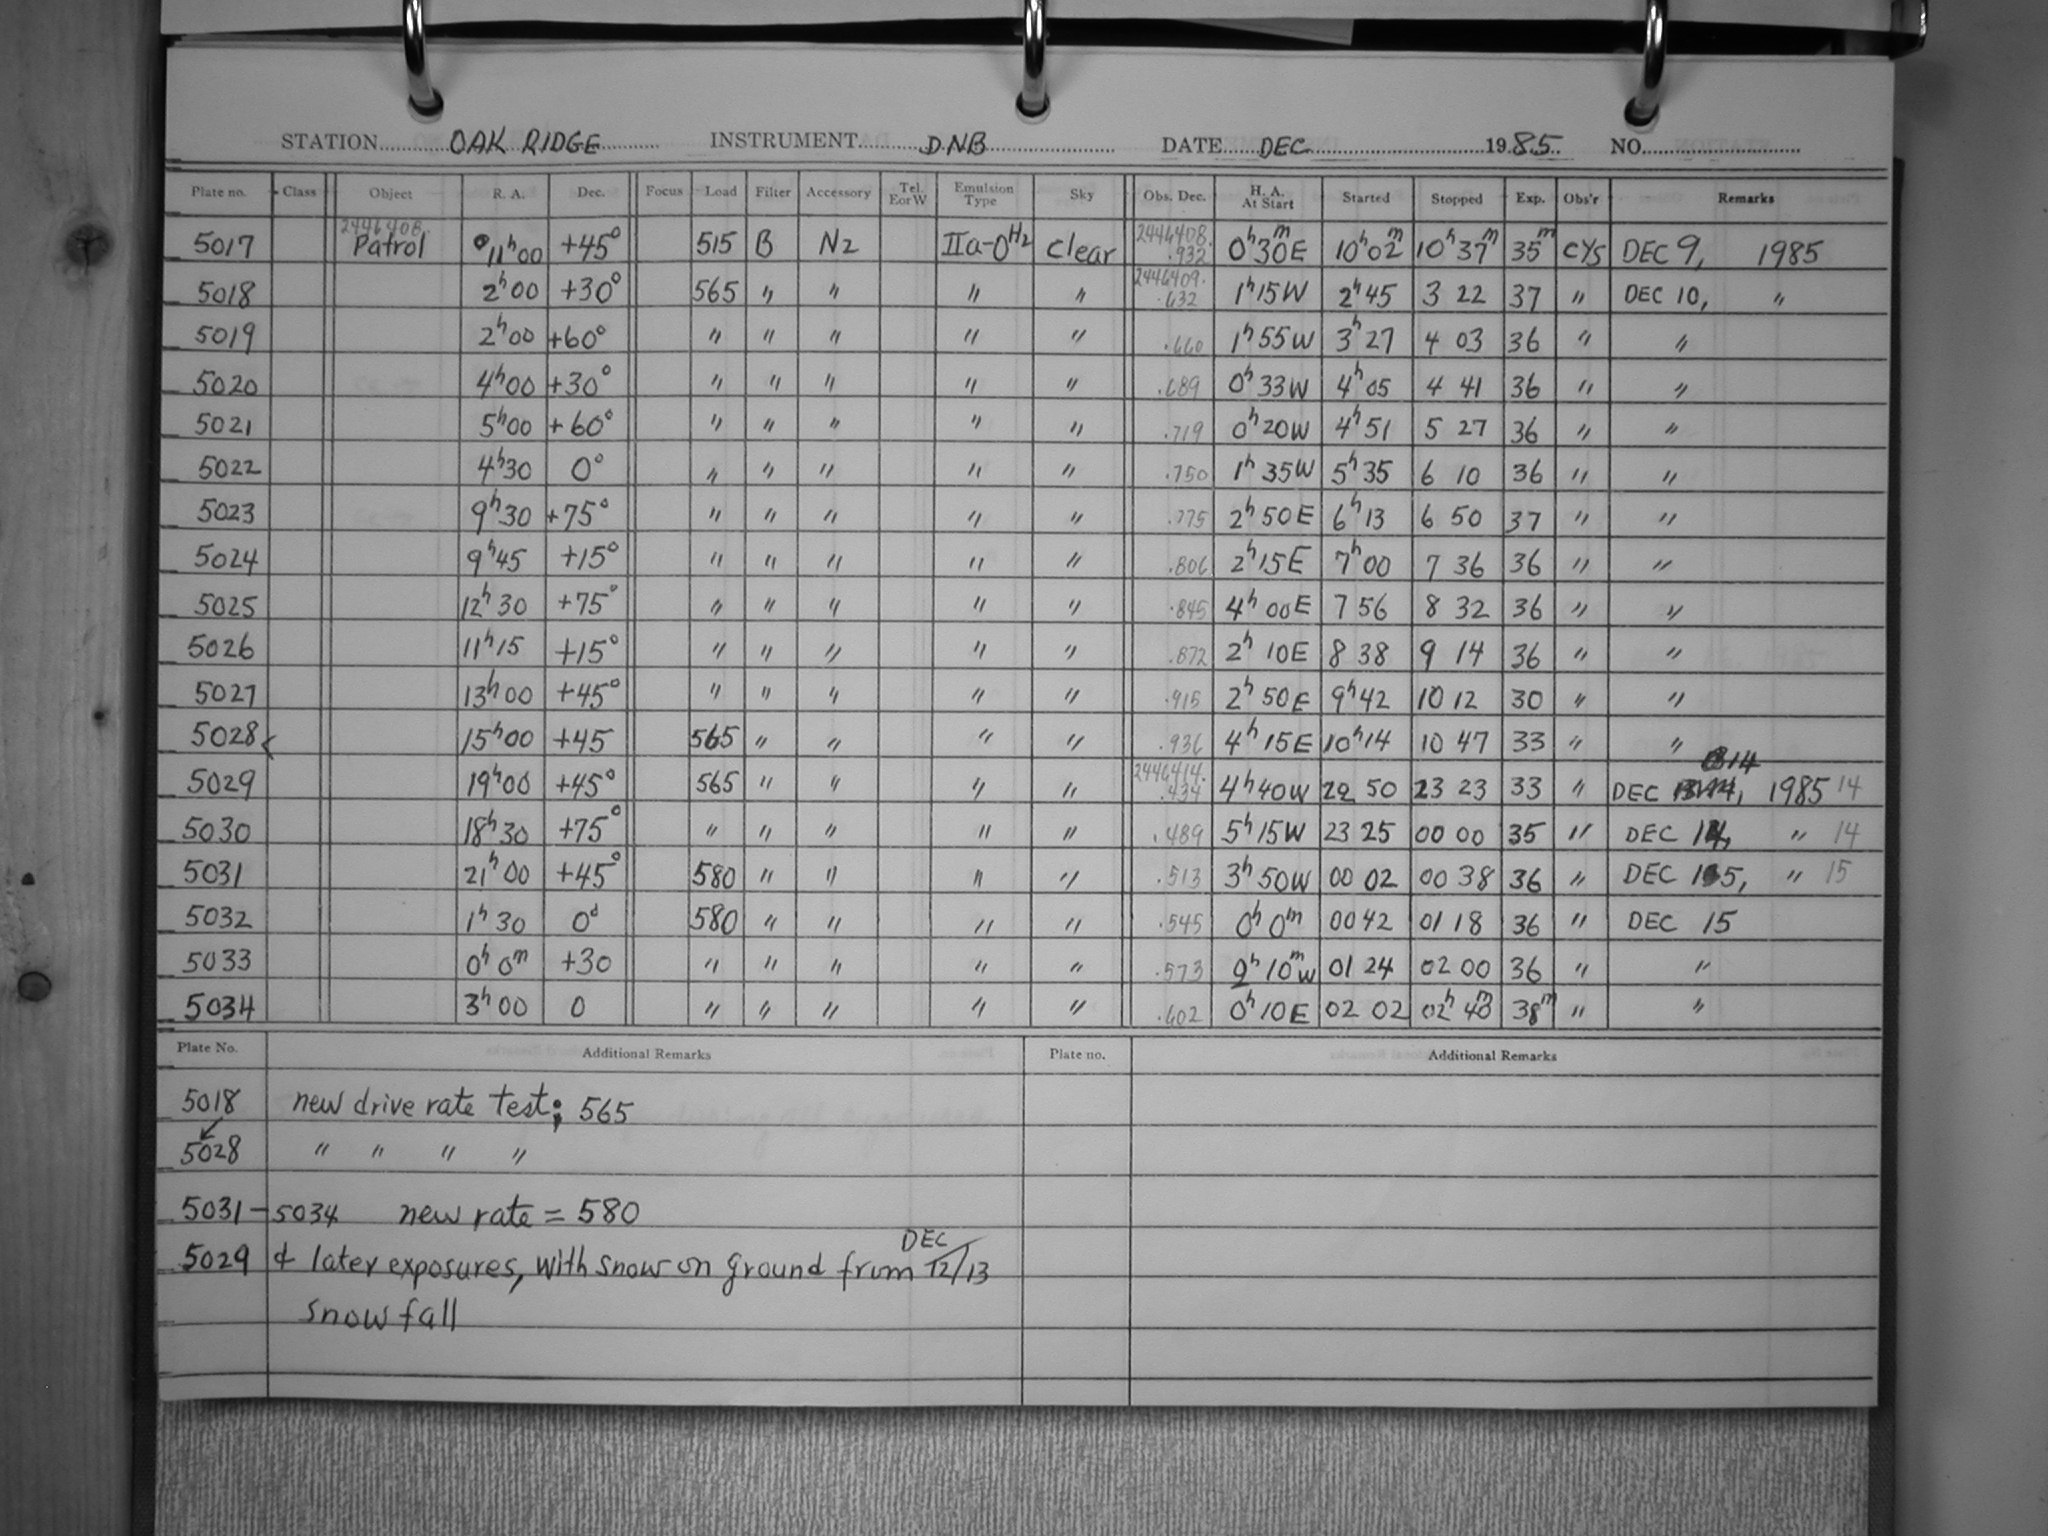 STATION OAK RIDGE INSTRUMENT DNB DATE DEC 1985 NO.
Plate no. Class Object R. A. Dec. Focus Load Filter Accessory Tel. E or W Emulsion Type Sky Obs. Dec. H. A. At Start Started Stopped Exp. Obs'r Remarks
2446408. 2446408.
5017 Patrol 11h00 +45° 515 B N2 IIa-O H2 clear .932 0h30mE 10h02m 10h37m 35m CYS DEC 9, 1985
2446409.
5018 2h00 +30° 565 " " " " .632 1h15W 2h45 3 22 37 " DEC 10, "
5019 2h00 +60° " " " " " .660 1h55W 3h27 4 03 36 " "
5020 4h00 +30° " " " " " .689 0h33W 4h05 4 41 36 " "
5021 5h00 +60° " " " " " .719 0h20W 4h51 5 27 36 " "
5022 4h30 0° " " " " " .750 1h35W 5h35 6 10 36 " "
5023 9h30 +75° " " " " " .775 2h50E 6h13 6 50 37 " "
5024 9h45 +15° " " " " " .806 2h15E 7h00 7 36 36 " "
5025 12h30 +75° " " " " " .845 4h00E 7 56 8 32 36 " "
5026 11h15 +15° " " " " " .872 2h10E 8 38 9 14 36 " "
5027 13h00 +45° " " " " " .915 2h50E 9h42 10 12 30 " "
5028 15h00 +45 565 " " " " .936 4h15E 10h14 10 47 33 " "
2446414. 14
5029 19h00 +45° 565 " " " " .434 4h40W 22 50 23 23 33 " DEC , 1985 14
5030 18h30 +75° " " " " " .489 5h15W 23 25 00 00 35 " DEC 14, " 14
5031 21h00 +45° 580 " " " " .513 3h50W 00 02 00 38 36 " DEC 15, " 15
5032 1h30 0° 580 " " " " .545 0h0m 00 42 01 18 36 " DEC 15
5033 0h0m +30 " " " " " .573 h10mW 01 24 02 00 36 " "
5034 3h00 0 " " " " " .602 0h10E 02 02 02h40m 38m " "
Plate No. Additional Remarks Plate no. Additional Remarks
5018 new drive rate test; 565
5028 " " " "
5031 - 5034 new rate = 580
DEC
5029 & later exposures, with snow on ground from 12/13
snow fall